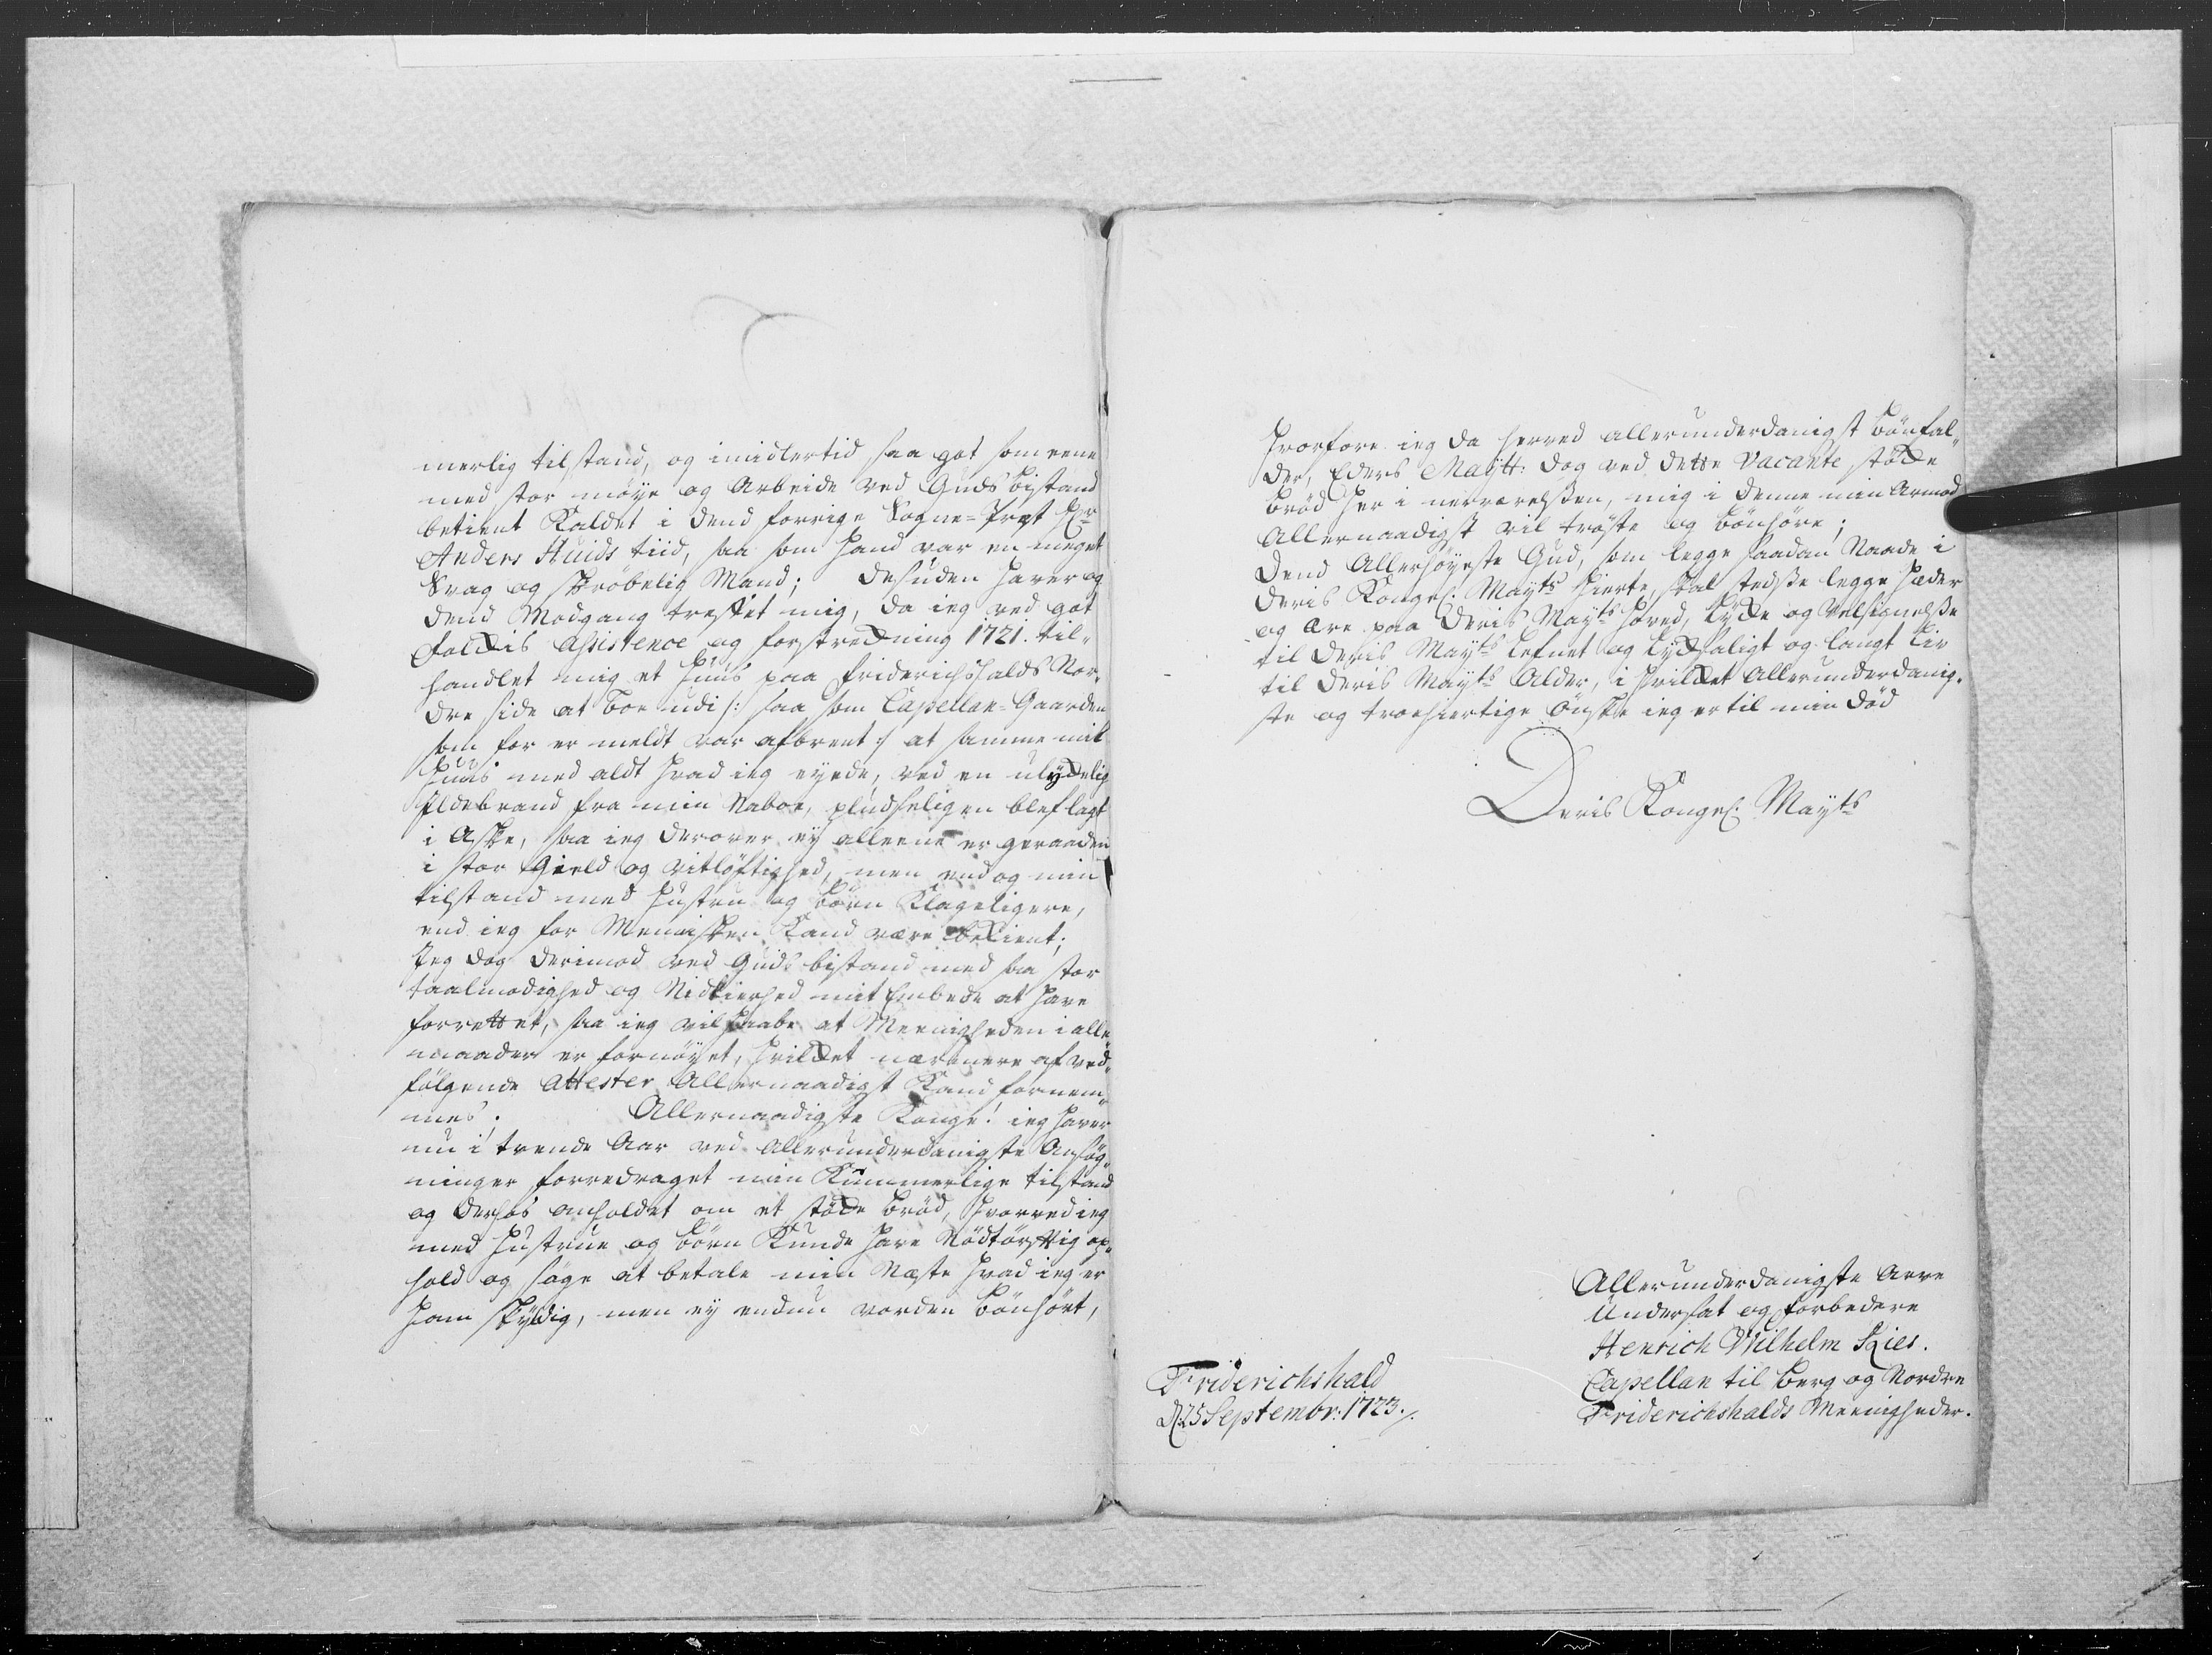 merlig tilstand, og imidlertid saa got som eene
med stor møye og Arbeide ved Guds bistand
betient Kaldet i dend forrige Sogne-Præst Hr
Anders Huids tiid, saa som hand var en meget
Svag og skrøbelig Mand; desuden haver og
dend Modgang treffet mig, da ieg ved got
folckis Assistence og forstreckning 1721. til-
handlet mig et Huus paa Friderichshalds Nor-
dre side at boe udi /: saa som Capellan-Gaarden
som før er meldt var afbrent :/ at samme mit
Huus med aldt hvad ieg eyede, ved en ulyckelig
Ildebrand fra min Naboe, pludseligen blef lagt
i Aske, saa ieg derover ey alleene er geraaden
i stor Gield og vitløftighed, men end og min
tilstand med Hustru og børn Klageligere,
end ieg for Mennisker Kand være bekient;
Jeg dog derimod ved Guds bistand med saa stor
taalmodighed og Nidkierhed mit Embede at have
forrettet, saa ieg vil haabe at Meenigheden i alle
maader er fornøyet, hvilcket nærmere af ved-
følgende Attester Allernaadigst Kand fornem-
mes; Allernaadigste Konge! ieg haver
nu i trende Aar ved Allerunderdanigste Ansøg-
ninger forredraget min Kummerlige tilstand
og derhos anholdet om et støcke brød, hvorved ieg
med Hustrue og børn Kunde have Nødtørftig op-
hold og søge at betale min Næste hvad ieg er
ham skyldig, men ey endnu vorden bønhørt,
Hvorfore ieg da herved allerunderdanigst bønfal-
der, Eders Maytt: dog ved dette Vacante støcke
brød her i nerværelsen, mig i denne min Armod
Allernaadigst vil trøste og bønhøre;
Dend Allerhøyeste Gud, som legge saadan Naade i
Deris Kongel: Mayts hierte, skal stedse legge hæder
og ære paa Deris Mayts hoved, lycke og Velsignelse
til Deris Mayts Lefnet og lycksaligt og langt Liv
til Deris Mayts Alder, i hvilcket Allerunderdanig-
ste og troehiertige ønske ieg er til min død
Deris Kongel: Mayts
Allerunderdanigste Arve
Undersat og forbedere
Henrich Wilhelm Kies.
Capellan til Berg og Nordre
Friderichshalds Meenigheder.
Friderichshald
d: 25 Septembr: 1723.